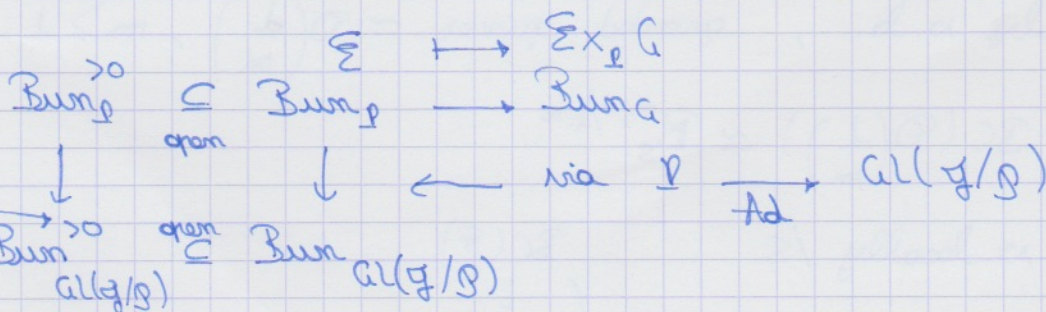 Σ ↦ Σ ×_P G
Bun_P^{>0} ⊆ open Bun_P → Bun_G
↓ ↓ ← via P →_{Ad} GL(𝔤/𝔭)
→ Bun^{>0}_{GL(𝔤/𝔭)} open ⊆ Bun_{GL(𝔤/𝔭)}